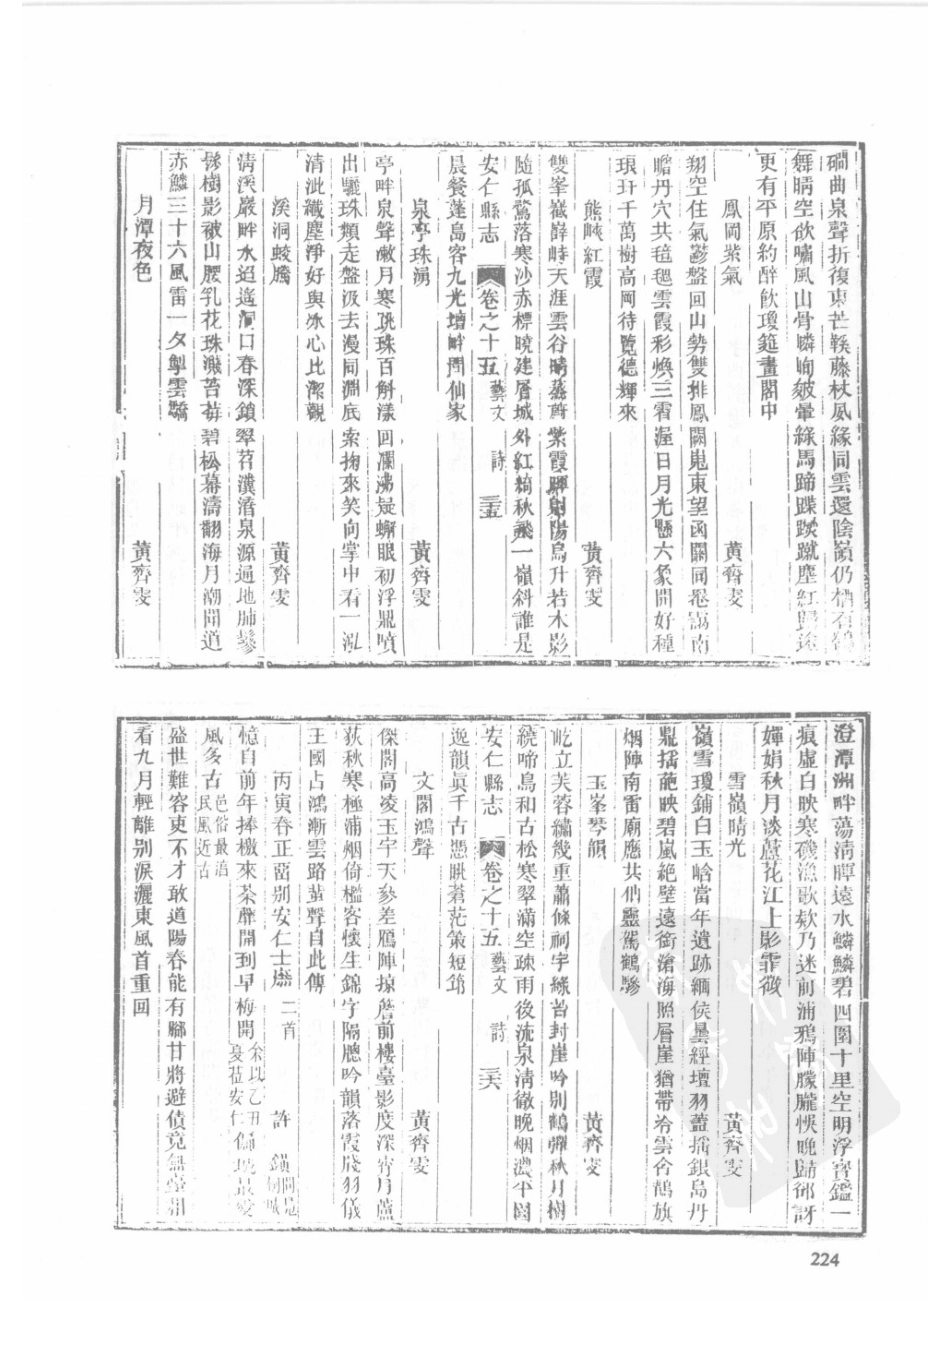 磵曲泉聲折復東芒鞋藤杖夙緣同雲還陰嶺仍棲石鶴
舞晴空欲嘯風山骨嶙峋皴暈綠馬蹄蹀躞蹴塵紅歸途
更有平原約醉飲瓊筵畫閣中
鳳岡紫氣 黃齊雯
翔空佳氣鬱盤回山勢雙排鳳闕嵬東望函關同靄南
瞻丹穴共毰毸雲霞彩煥三霄渥日月光懸六象開好種
琅玕千萬樹高岡待覽德輝來
熊峽紅霞 黃齊雯
雙峯嶻嶭峙天涯雲谷晴蒸蔚紫霞暉射陽烏升若木影
隨孤鶩落寒沙赤標曉建層城外紅綺秋飛一嶺斜誰是
安仁縣志 卷之十五 藝文 詩 三五
晨餐蓬島客九光壇畔問仙家
泉亭珠湧 黃齊雯
亭畔泉聲漱月寒跳珠百斛漾回瀾沸疑蠏眼初浮鼎噴
出驪珠類走盤汲去漫同淵底索掬來笑向掌中看一泓
清泚纖塵淨好與冰心比潔觀
溪洞蛟騰 黃齊雯
清溪巖畔水迢遙洞口春深鎖翠苕瀵湝泉源通地肺鬖
髿樹影被山腰乳花珠濺苔莓碧松幕濤翻海月潮聞道
赤鱗三十六風雷一夕掣雲驕
月潭夜色 黃齊雯
澄潭洲畔蕩清暉遠水鱗鱗碧四圍十里空明浮寶鑑一
痕虛白映寒磯漁歌欸乃迷前浦鴉陣朦朧悞晚歸卻訝
嬋娟秋月淡蘆花江上影霏微
雪嶺晴光 黃齊雯
嶺雪瓊鋪白玉峆當年遺跡緬侯曇經壇羽蓋搖銀島丹
鼎搖葩映碧嵐絕壁遠銜滄海照層崖猶帶冷雲含鵲旗
烟陣南雷廟應共仙靈駕鶴驂
玉峯琴韻 黃齊雯
屹立芙蓉繡幾重蕭條祠宇綠苔封崖吟別鶴彈秋月樹
繞啼烏和古松寒翠滿空疎雨後流泉清徹晚烟濃平園
安仁縣志 卷之十五 藝文 詩 三六
逸韻眞千古憑眺蒼茫策短筇
文閣鴻聲 黃齊雯
傑閣高凌玉宇天參差鴈陣掠簷前樓臺影度深宵月蘆
荻秋寒極浦烟倚檻客懷生錦字隔牕吟韻落霞牋羽儀
王國占鴻漸雲路蜚聲自此傳
丙寅春正留別安仁士燐二首 許
憶自前年捧檄來荼蘼開到早梅開余以乙丑夏菈安仁
風多古邑俗最湻民風近古
盛世難容吏不才敢道陽春能有腳甘將避債竟無臺
看九月輕離別淚灑東風首重回
224